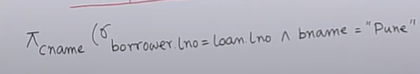 π cname (σ borrower.lno = loan.lno ∧ bname = "Pune"